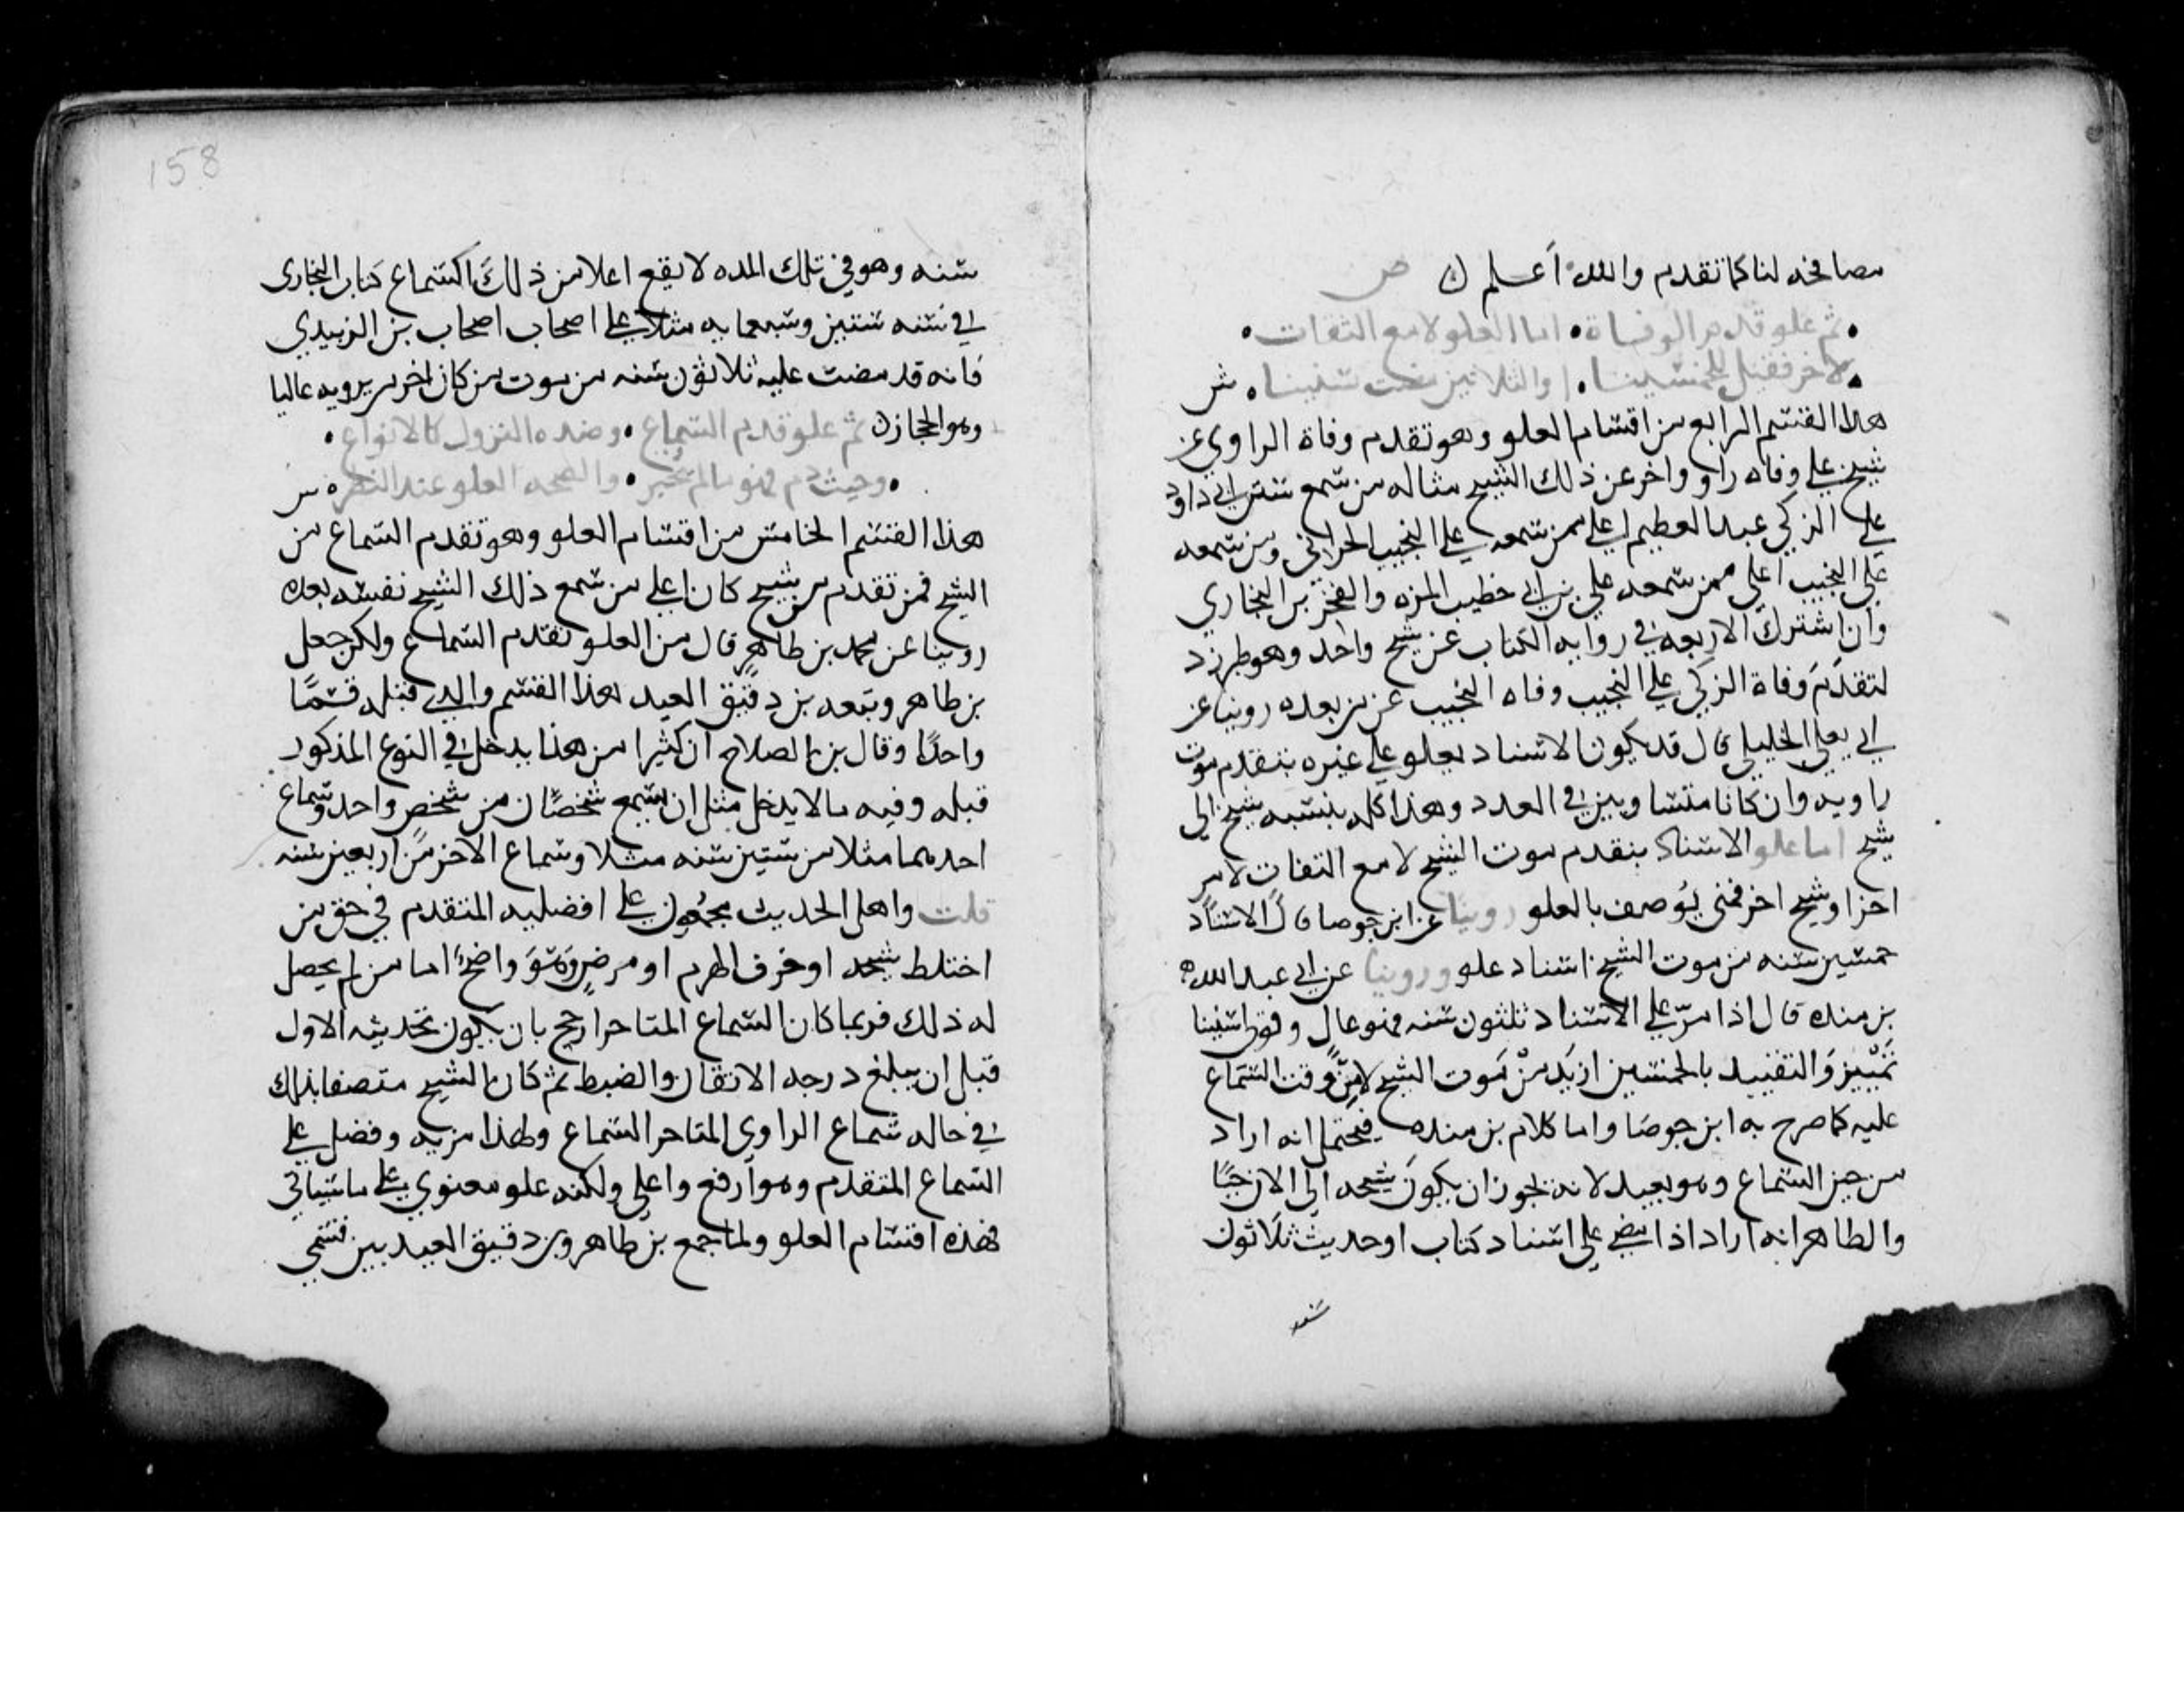 مصافحه لنا كما تقدم والله أعلم ن ص
ثم علو قدم الوفاة • اما العلو لا مع التفات •
لاخر فقيل للخمسينا • والثلاثين مضت سنينا • ش
هذا القسم الرابع من اقسام العلو وهو تقدم وفاة الراوي عن
شيخ علي وفاه راو واخر عن ذلك الشيخ مثاله من سمع سنن ابي داود
علي الزكي عبد العظيم اعلي ممن سمعه علي النجيب الحراني ومن سمعه
علي النجيب اعلي ممن سمعه علي بن ابي خطيب المزه والفخر بن البخاري
وان اشترك الاربعه في روايه الكتاب عن شيخ واحد وهو طبرزد
لتقدم وفاة الزكي علي النجيب وفاه النجيب عن من بعده روينا عن
ابي يعلي الخليلي قال قد يكون الاسناد يعلو علي غيره بتقدم موت
راويه وان كانا متساويين في العدد وهذا كله بنسبه شيخ الي
شيخ اما علو الاسناد بتقدم موت الشيخ لا مع التفات لامر
اخر او شيخ اخر فمتي يوصف بالعلو روينا عن ابن جوصا قال الاسناد
خمسين سنه من موت الشيخ اسناد علو وروينا عن ابي عبد الله
بن منده قال اذا مر علي الاسناد ثلثون سنه فهو عال وقولي سنينا
تمييز والتقييد بالخمسين اريد من موت الشيخ لا من وقت السماع
عليه كما صرح به ابن جوصا واما كلام بن منده فيحتمل انه اراد
من حين السماع وهو بعيد لانه يجوز ان يكون شيخه الي الان حيا
والظاهر انه اراد اذا مضي علي اسناد كتاب او حديث ثلاثون
سنه
158
سنه وهو في تلك المده لا يقع اعلا من ذلك كسماع كتاب البخاري
في سنه ستين وسبعمايه مثلا علي اصحاب اصحاب بن الزبيدي
فانه قد مضت عليه ثلاثون سنه من موت من كان اخر من يرويه عاليا
وهو الحجار ن ثم علو قدم السماع • وضده النزول كالانواع •
• وحيث ذم فهو ما لم يجبر • والصحه العلو عند النظر • ش
هذا القسم الخامس من اقسام العلو وهو تقدم السماع من
الشيخ فمن تقدم من شيخ كان اعلي من سمع ذلك الشيخ نفسه بعده
روينا عن محمد بن طاهر قال من العلو تقدم السماع ولكن جعل
بن طاهر وتبعه بن دقيق العيد هذا القسم والذي قبله قسما
واحدا وقال بن الصلاح ان كثيرا من هذا يدخل في النوع المذكور
قبله وفيه ما لا يدخل مثل ان يسمع شخصان من شخص واحد وسماع
احدهما مثلا من ستين سنه مثلا وسماع الاخر من اربعين سنه
قلت واهل الحديث مجمعون علي افضليه المتقدم في حق من
اختلط شيخه او خرف لهرم او مرض وهو واضح اما من لم يحصل
له ذلك فربما كان السماع المتاخر ارجح بان يكون تحديثه الاول
قبل ان يبلغ درجه الاتقان والضبط ثم كان الشيخ متصفا بذلك
في حاله سماع الراوي المتاخر السماع ولهذا مزيه وفضل علي
السماع المتقدم وهو ارفع واعلي ولكنه علو معنوي علي ما سياتي
فهذه اقسام العلو ولما جمع بن طاهر وبن دقيق العيد بين قسمي